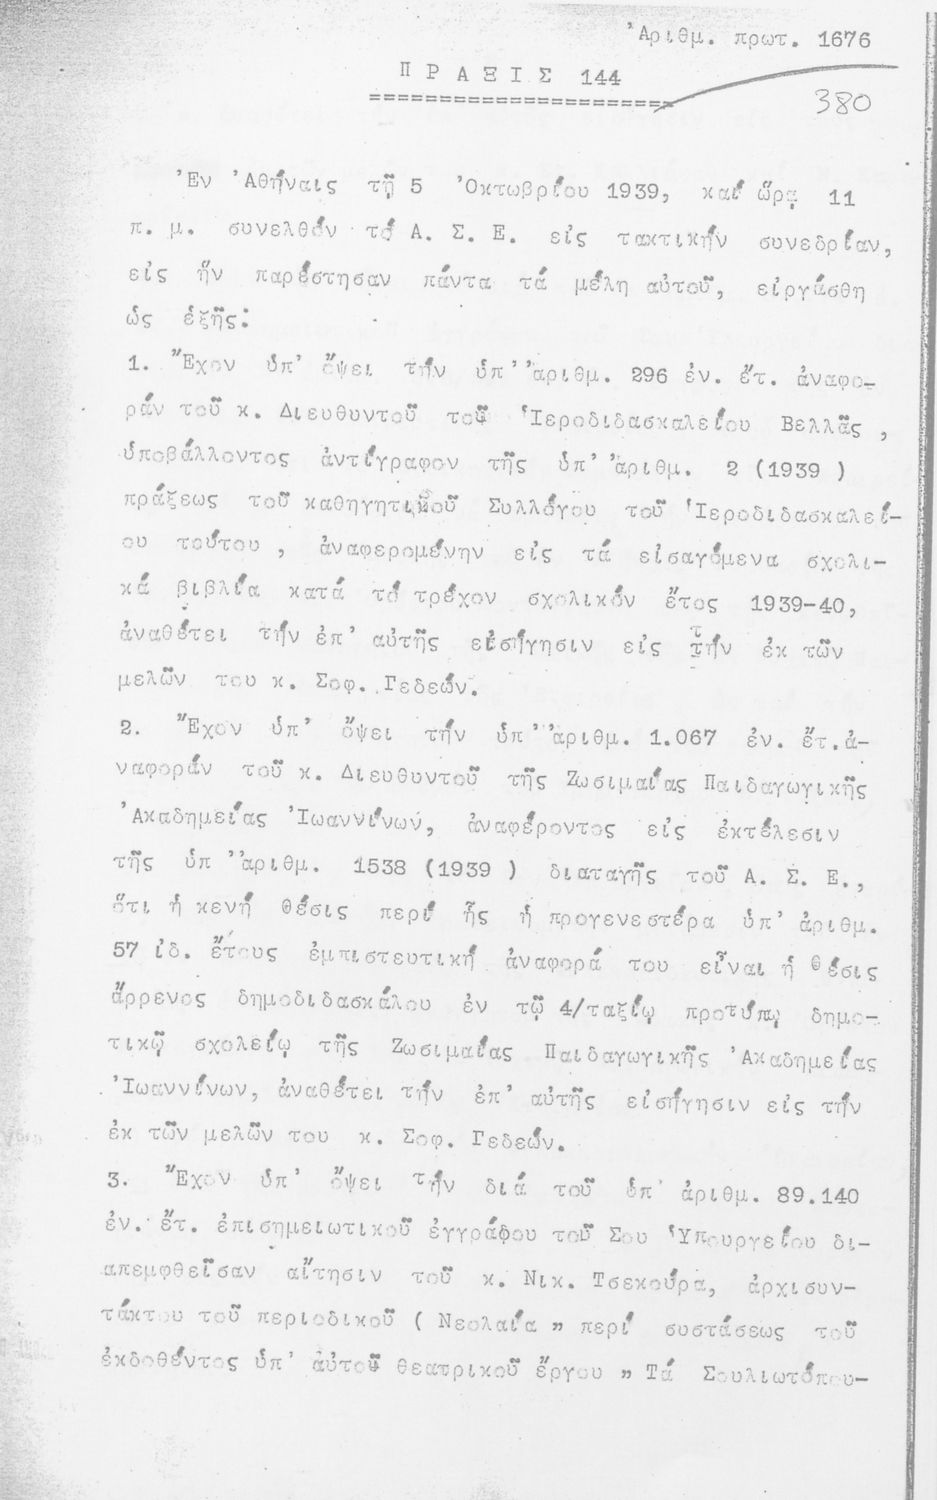 Ἀριθμ. πρωτ. 1676
Π Ρ Α Ξ Ι Σ 144
380
Ἐν Ἀθήναις τῇ 5 Ὀκτωβρίου 1939, καί ὥρᾳ 11
π. μ. συνελθόν τό Α. Σ. Ε. εἰς τακτικήν συνεδρίαν,
εἰς ἥν παρέστησαν πάντα τά μέλη αὐτοῦ, εἰργάσθη
ὡς ἑξῆς:
1. Ἔχον ὑπ' ὄψει τήν ὑπ' ἀριθμ. 296 ἐν. ἔτ. ἀναφο-
ράν τοῦ κ. Διευθυντοῦ τοῦ Ἱεροδιδασκαλείου Βελλᾶς ,
ὑποβάλλοντος ἀντίγραφον τῆς ὑπ' ἀριθμ. 2 (1939 )
πράξεως τοῦ καθηγητικοῦ Συλλόγου τοῦ Ἱεροδιδασκαλεί-
ου τούτου , ἀναφερομένην εἰς τά εἰσαγόμενα σχολι-
κά βιβλία κατά τό τρέχον σχολικόν ἔτος 1939-40,
ἀναθέτει τήν ἐπ' αὐτῆς εἰσήγησιν εἰς τήν ἐκ τῶν
μελῶν του κ. Σοφ. Γεδεών.
2. Ἔχον ὑπ' ὄψει τήν ὑπ' ἀριθμ. 1.067 ἐν. ἔτ. ἀ-
ναφοράν τοῦ κ. Διευθυντοῦ τῆς Ζωσιμαίας Παιδαγωγικῆς
Ἀκαδημείας Ἰωαννίνων, ἀναφέροντος εἰς ἐκτέλεσιν
τῆς ὑπ' ἀριθμ. 1538 (1939 ) διαταγῆς τοῦ Α. Σ. Ε.,
ὅτι ἡ κενή θέσις περί ἧς ἡ προγενεστέρα ὑπ' ἀριθμ.
57 ἰδ. ἔτους ἐμπιστευτική ἀναφορά του εἶναι ἡ θέσις
ἄρρενος δημοδιδασκάλου ἐν τῷ 4/ταξίῳ προτύπῳ δημο-
τικῷ σχολείῳ τῆς Ζωσιμαίας Παιδαγωγικῆς Ἀκαδημείας
Ἰωαννίνων, ἀναθέτει τήν ἐπ' αὐτῆς εἰσήγησιν εἰς τήν
ἐκ τῶν μελῶν του κ. Σοφ. Γεδεών.
3. Ἔχον ὑπ' ὄψει τήν διά τοῦ ὑπ' ἀριθμ. 89.140
ἐν. ἔτ. ἐπισημειωτικοῦ ἐγγράφου τοῦ Σου Ὑπουργείου δι-
απεμφθεῖσαν αἴτησιν τοῦ κ. Νικ. Τσεκούρα, ἀρχισυν-
τάκτου τοῦ περιοδικοῦ ( Νεολαία " περί συστάσεως τοῦ
ἐκδοθέντος ὑπ' αὐτοῦ θεατρικοῦ ἔργου " Τά Σουλιωτόπου-